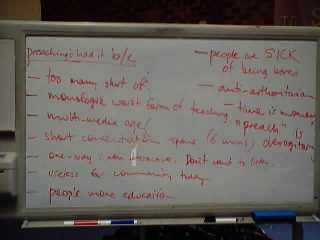 preaching's had it b/c
— too many shut off
— monologue worst form of teaching
— multi-media age!
— short concentration spans (6 mins)
— one-way : non interactive. Don't want to listen.
— useless for communicating today
— people more education
— people are SICK
of being bored
— anti-authoritarian
— time is
"preach" is
derogatory